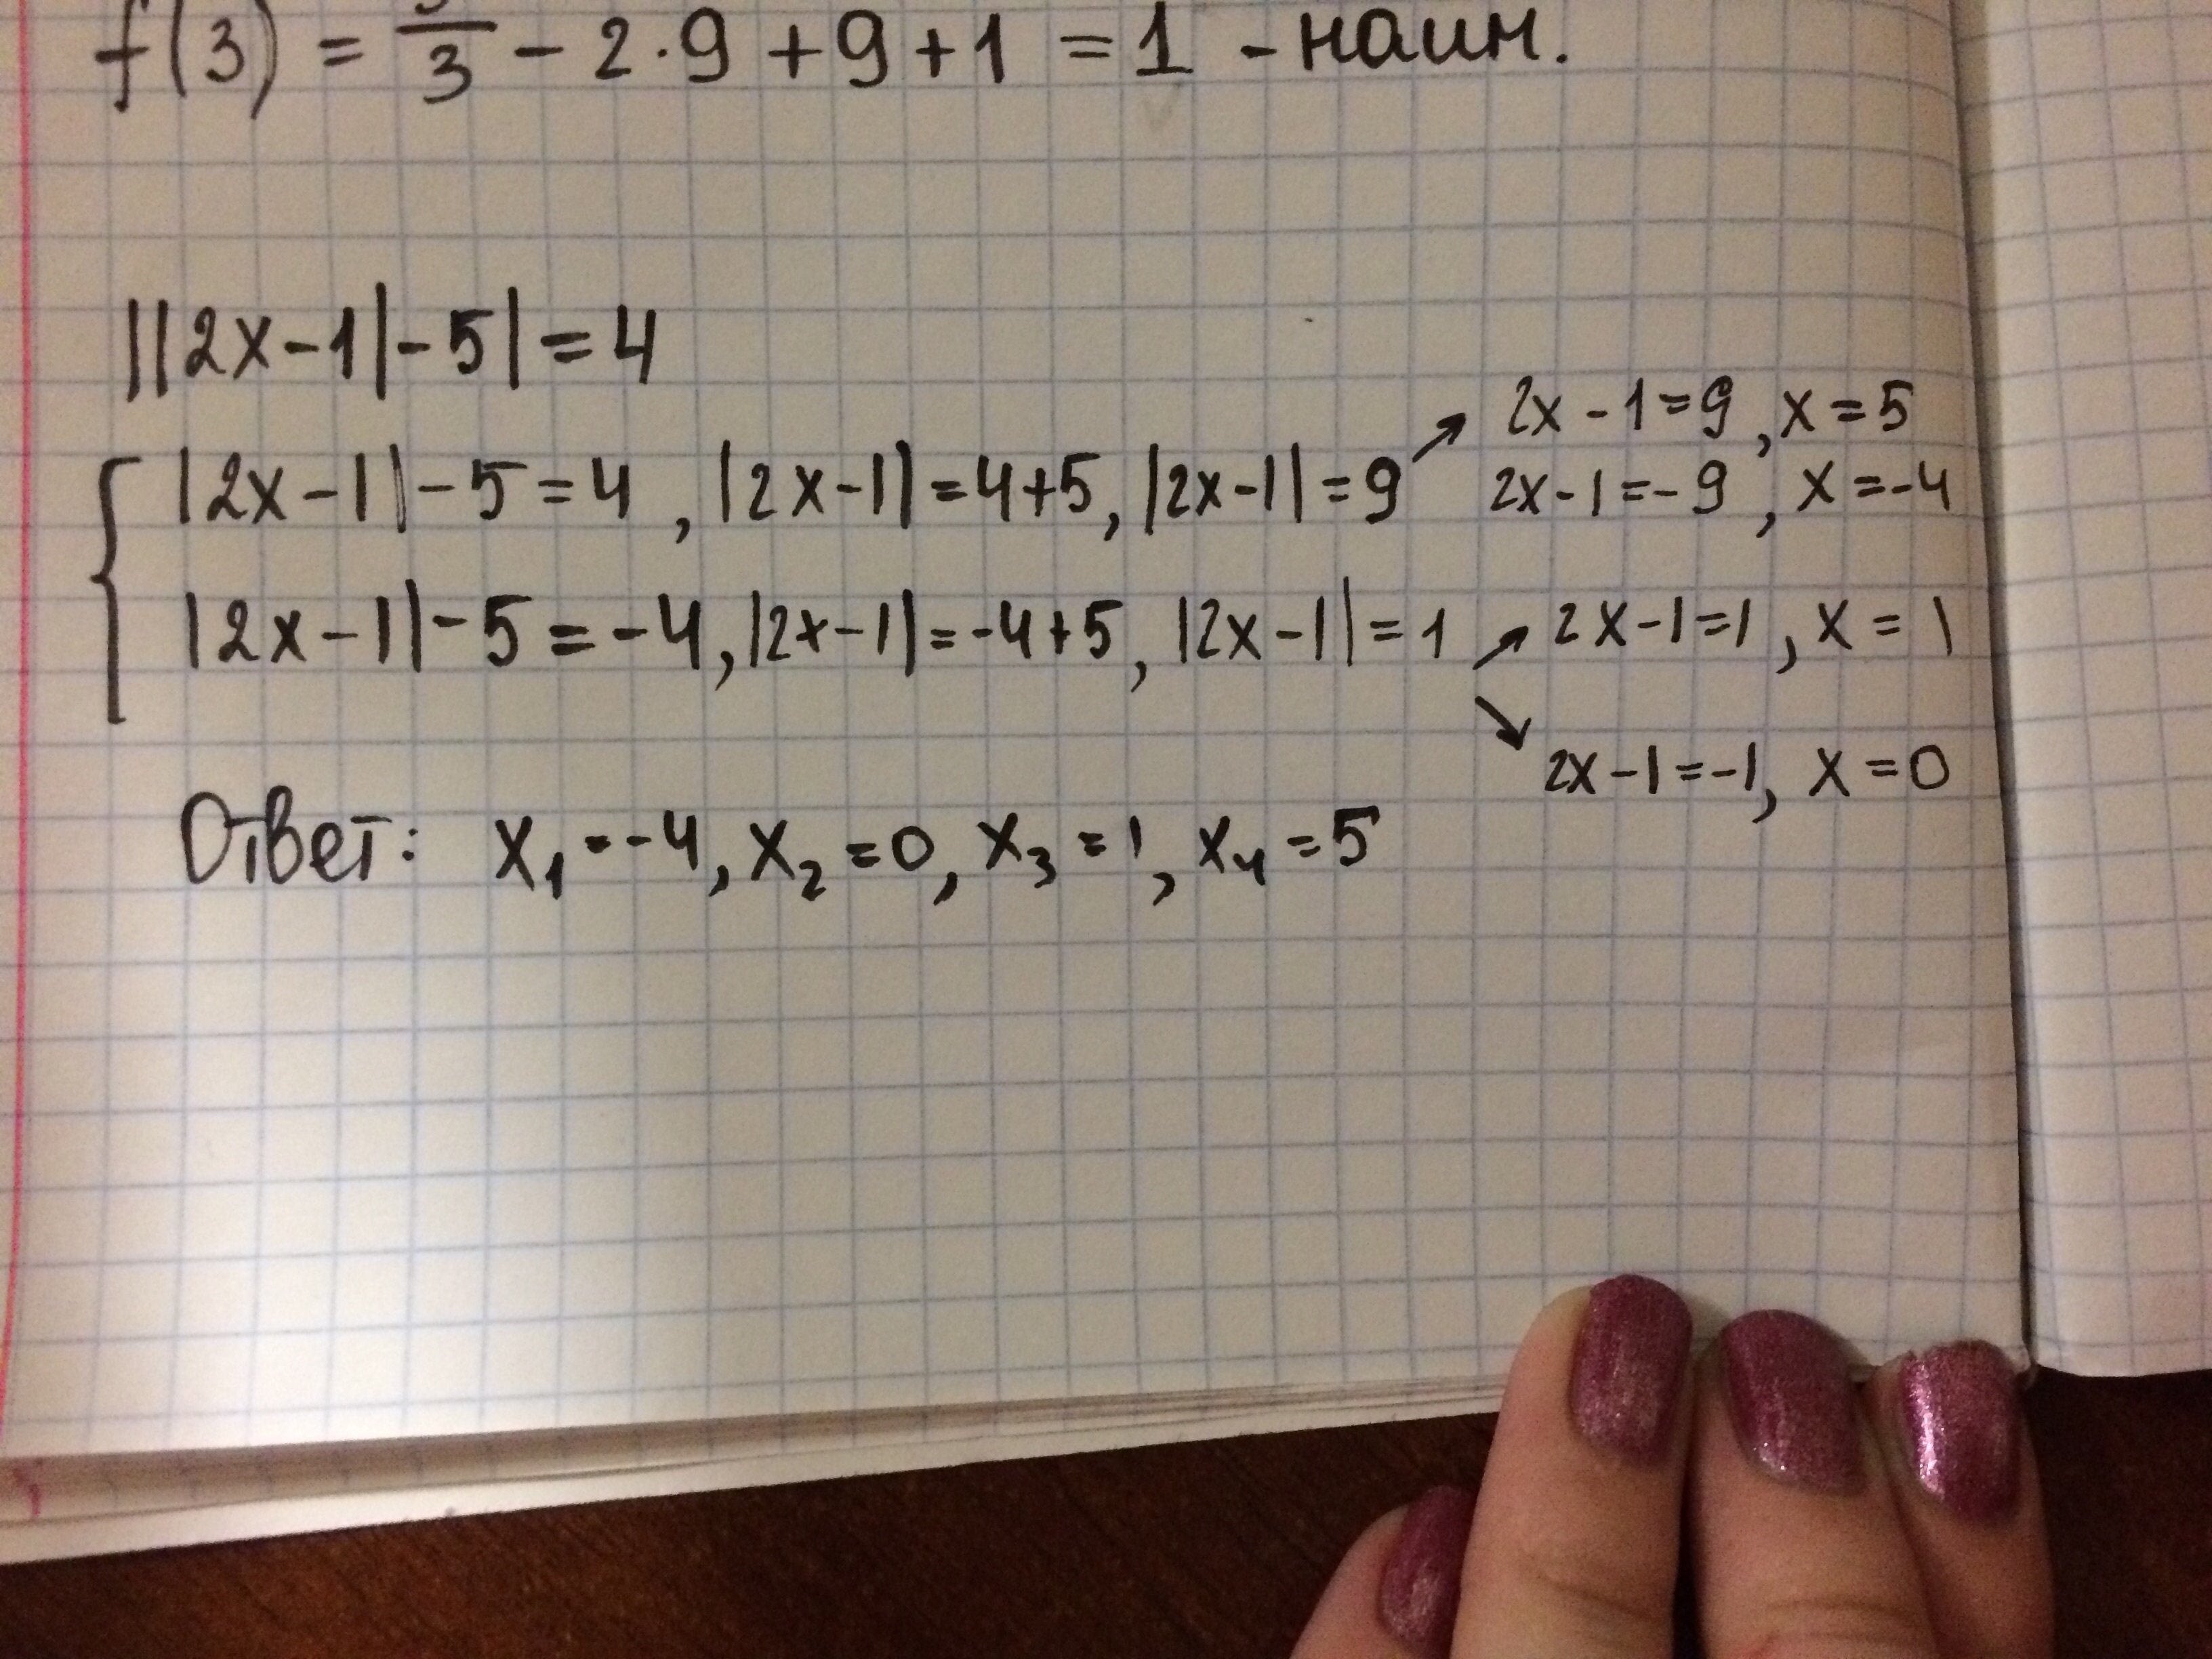 f(3) = /3 - 2·9 + 9 + 1 = 1 - наим.
||2x-1|-5|=4
|2x-1|-5=4, |2x-1|=4+5, |2x-1|=9 ↗ 2x-1=9, x=5
2x-1=-9, x=-4
|2x-1|-5=-4, |2x-1|=-4+5, |2x-1|=1 ↗ 2x-1=1, x=1
↘ 2x-1=-1, x=0
Ответ: x₁=-4, x₂=0, x₃=1, x₄=5